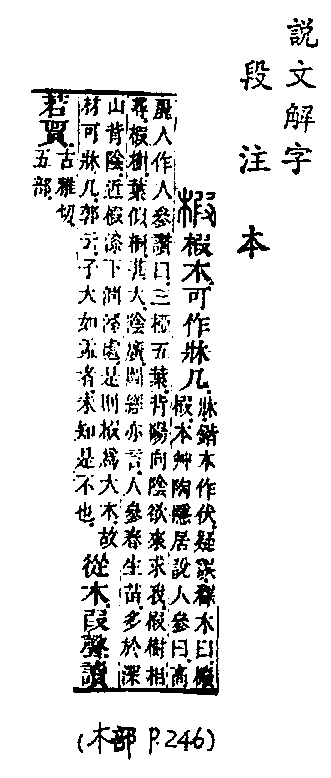 說文解字
段注本
椵 椵木.可作牀几.牀鍇本作伏.疑誤.釋木曰.櫠
椵.本艸陶隱居說人參曰.高
麗人作人參讚曰.三椏五葉.背陽向陰.欲來求我.椵樹相
尋.椵樹葉似桐.甚大.陰廣.圖經亦言.人參春生苗.多於深
山背陰.近椵漆下潤溼處.是則椵爲大木.故
材可牀几.郭云.子大如盂者.未知是不也.從木.叚聲.讀
若賈.古雅切.
五部.
(木部 P.246)